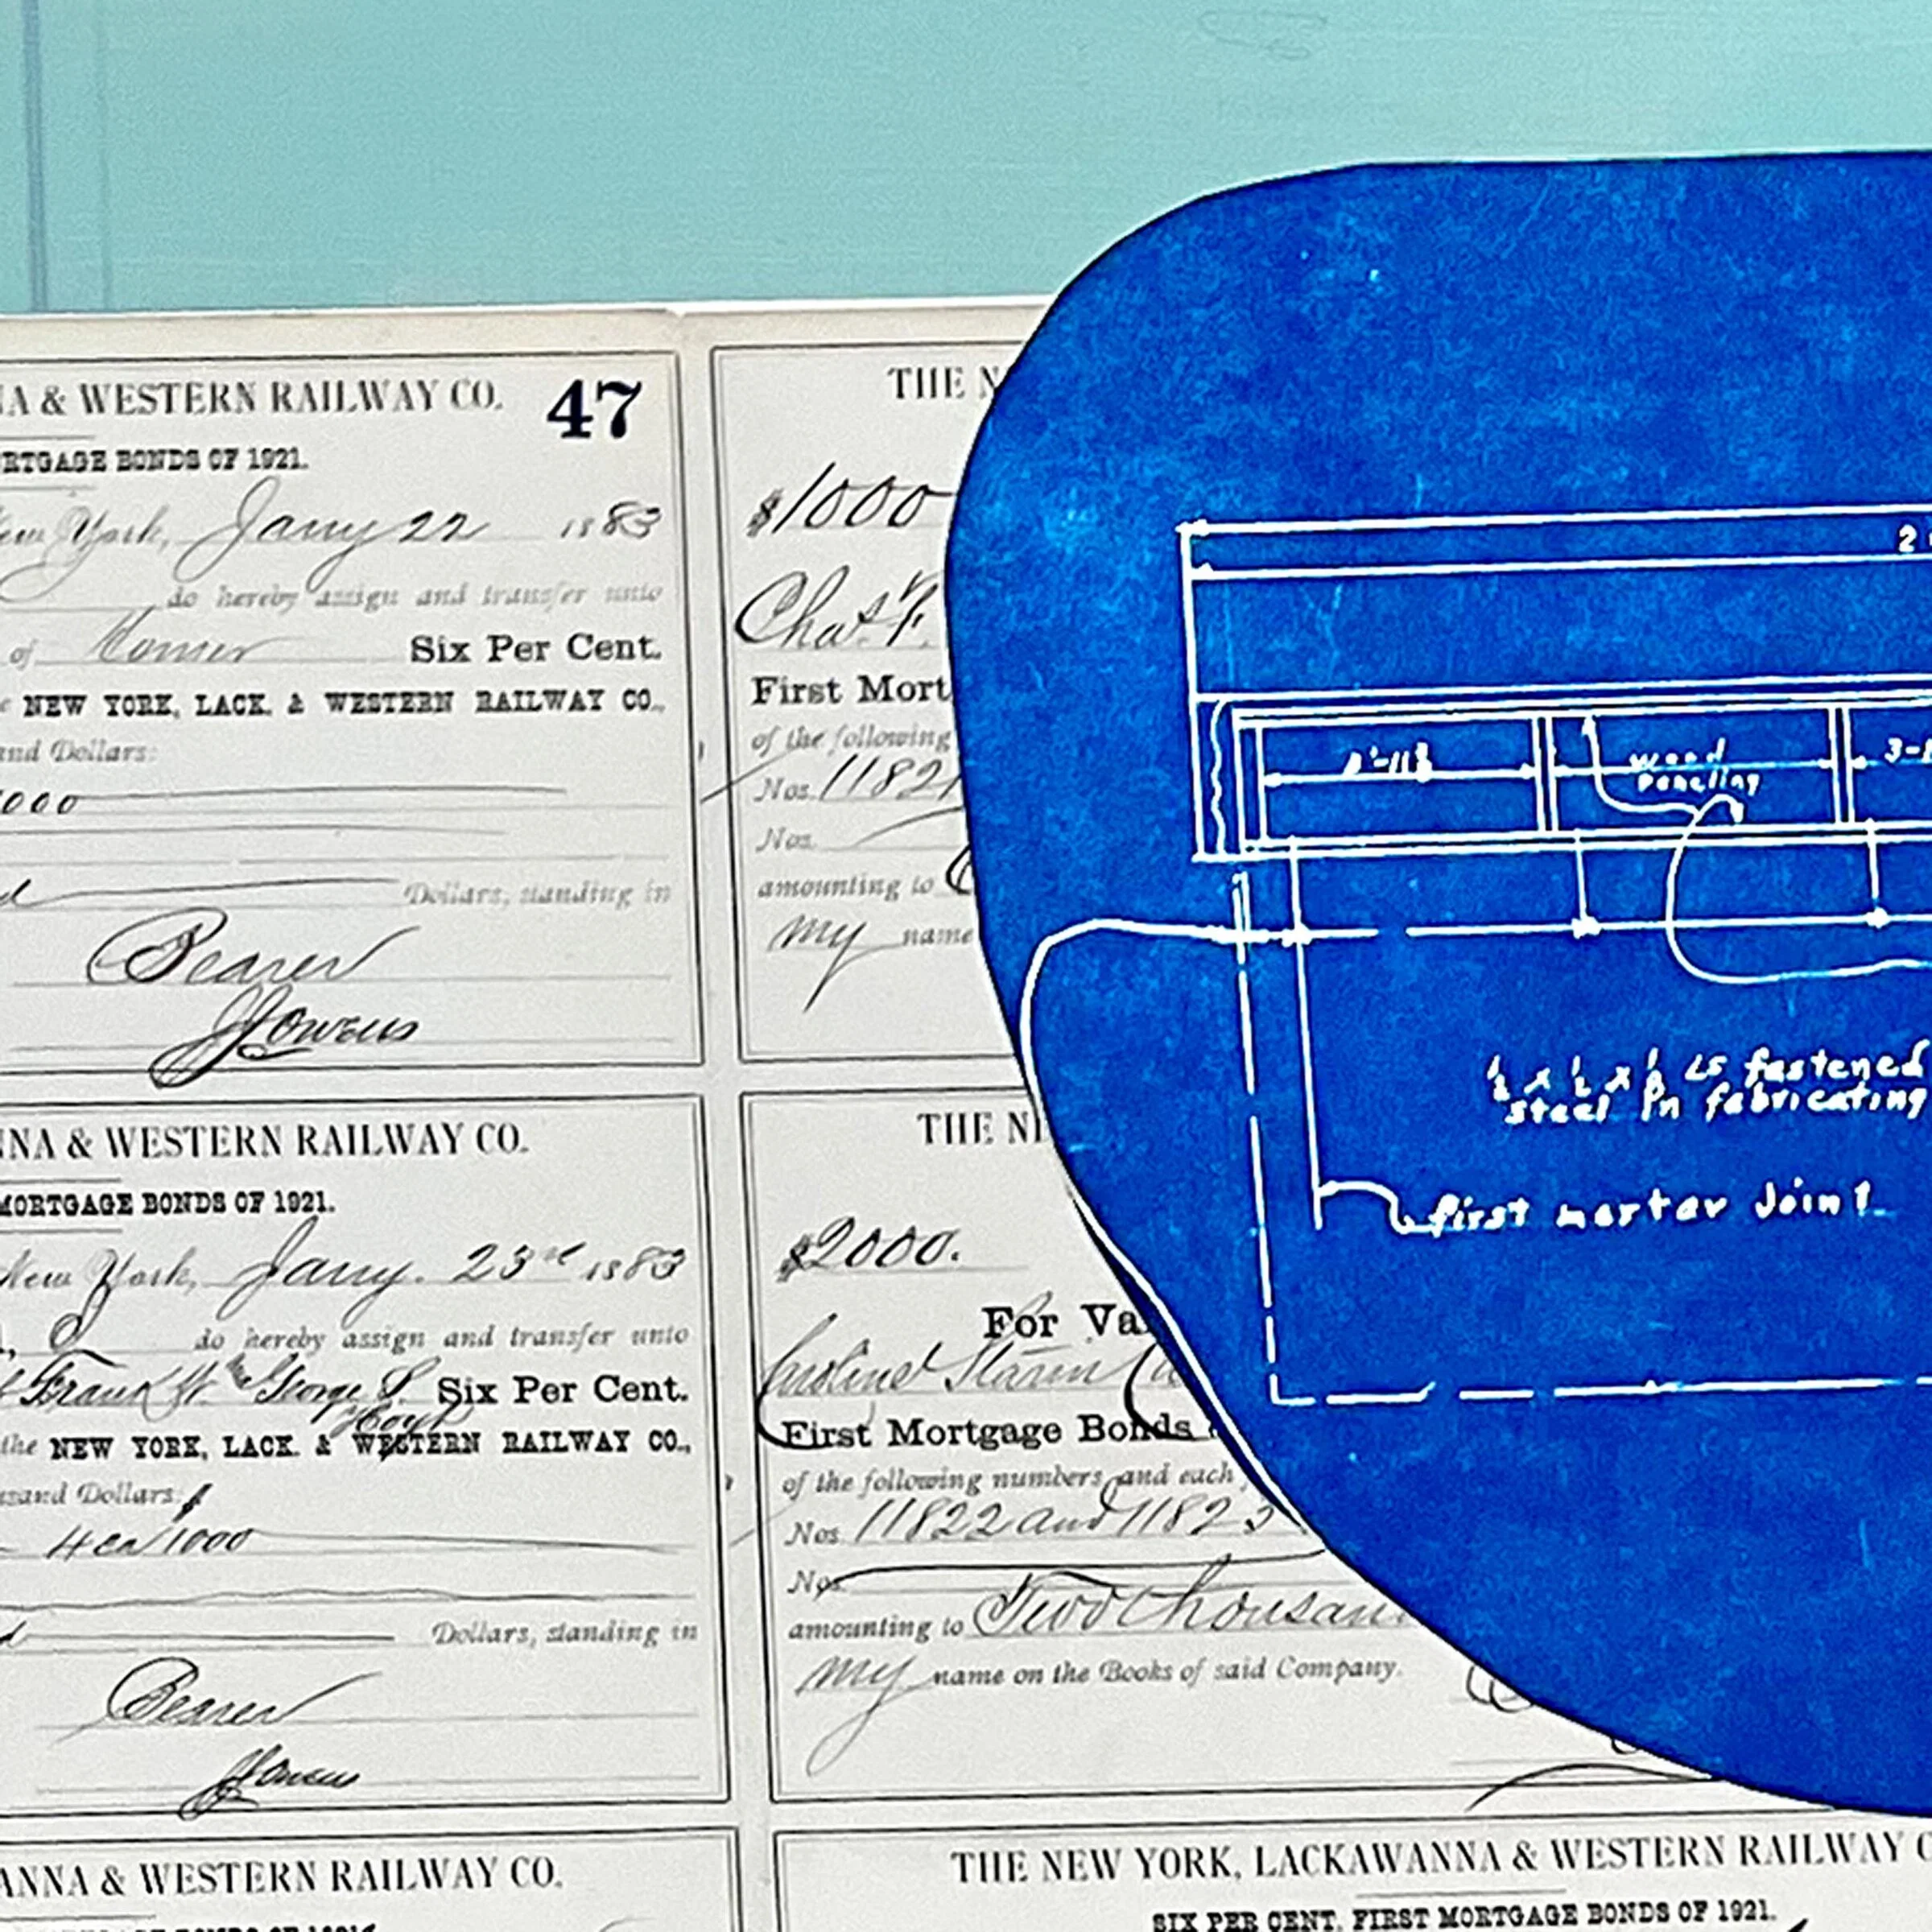 NA & WESTERN RAILWAY CO. 47
RTGAGE BONDS OF 1921.
ew York, Jany 22 1883
do hereby assign and transfer unto
of Six Per Cent.
NEW YORK, LACK. & WESTERN RAILWAY CO.,
and Dollars:
000
Dollars, standing in
Bearer
JJOwens
THE N
$1000
Chas. F.
First Mort
of the following
Nos. 11821
Nos.
amounting to
my name
NNA & WESTERN RAILWAY CO.
MORTGAGE BONDS OF 1921.
New York, Jany. 23rd 1883
do hereby assign and transfer unto
Frank W. George S. Six Per Cent.
Hoyt
the NEW YORK, LACK. & WESTERN RAILWAY CO.,
usand Dollars:
4 ea 1000
Dollars, standing in
Bearer
THE NE
$2000.
For Va
First Mortgage Bonds
of the following numbers, and each
Nos. 11822 and 11823
Nos.
amounting to Two thousand
my name on the Books of said Company.
ANNA & WESTERN RAILWAY CO.
THE NEW YORK, LACKAWANNA & WESTERN RAILWAY C
SIX PER CENT. FIRST MORTGAGE BONDS OF 1921.
2
wood
paneling
3-
½ x ½ x ⅛ Ls fastened
steel in fabricating
first mortar joint